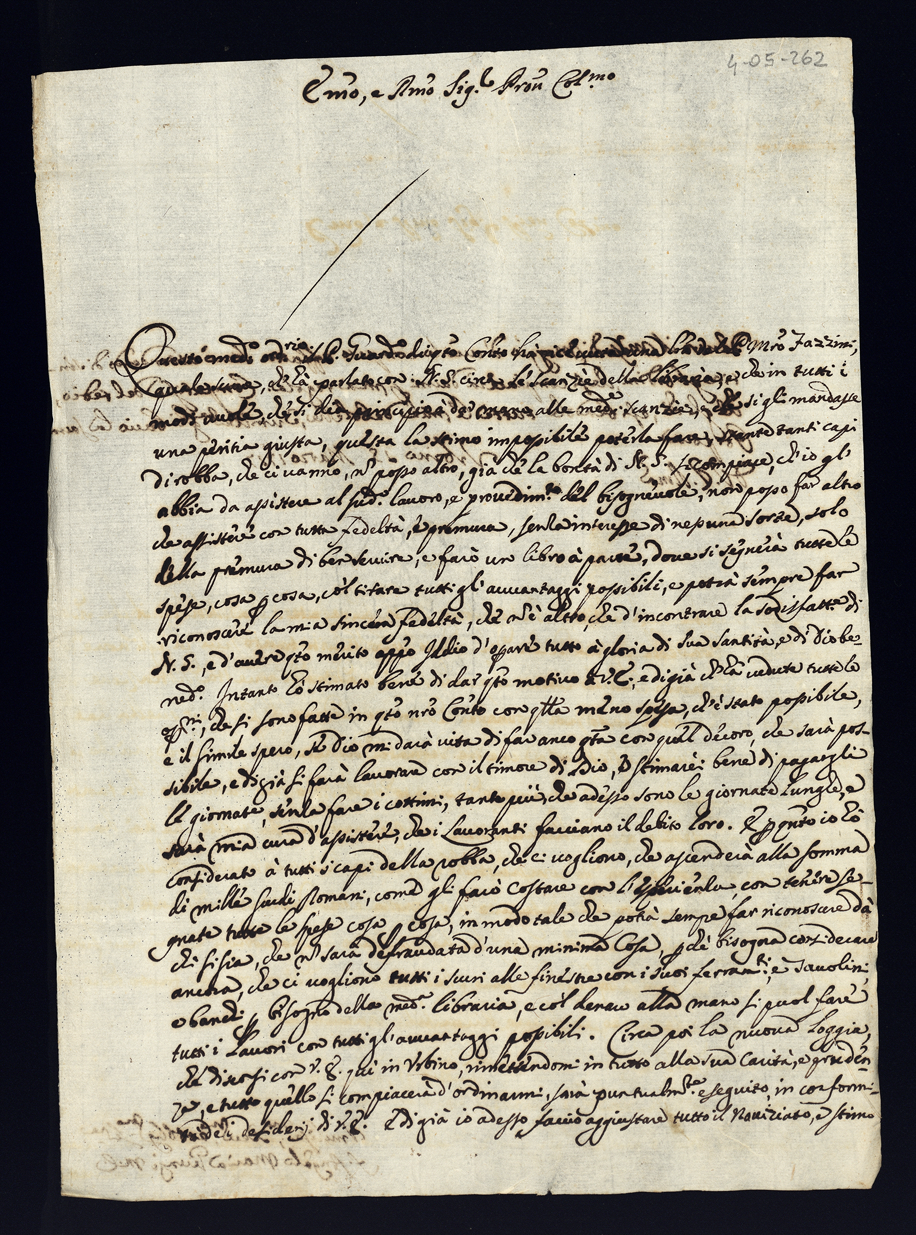 4-05-262
Emo, e Rmo Sig.re Pron Col.mo
Questo med.o ord.rio il P. Guard.o di qsto Conto hà ricevuto una lra dal P. Mro Fazzini,
quale scrive, ch'hà parlato con N. S. circa le scanzie della libraria, e che in tutti i
modi vuole, che si dia principio alle med.e scanzie, e che si gli mandasse
una peritia giusta, questa la stimo impossibile poterla fare, stante tanti capi
di robba, che ci vanno, nō posso altro, già che la bontà di N. S. si compiace, ch'io gli
abbia da assistere al sud.o lavoro, e provedim.to del bisognevole, non posso far altro
che assistere con tutta fedeltà, e premura, senza interesse di nepuna sorte, solo
della premura di ben servire, e farò un libro à parte, dove si segnerà tutte le
spese, cosa p cosa, col titare tutti gl'avvantaggi possibili, e potrà sempre far
riconoscere la mia sincera fedeltà, che nō è altro, che d'incontrare la sodisfatt.e di
N. S., e d'avere qsto merito appo Iddio d'oprare tutto à gloria di Sua Santità, e di Dio be-
ned.o Intanto hò stimato bene di dar qsto motivo à V. E., e di già ch'hà vedute tutte le
, che si sono fatte in qsto nro Conto con qlla meno spesa, ch'è stato possibile,
e il simile spero, se Dio mi darà vita di far anco qta con quell decoro, che sarà pos-
sibile, e di già si farà lavorare con il timore di Dio, e stimarei bene di pagargli
le giornate, senza fare i cottimi, tanto più, che adesso sono le giornate lunghe, e
sarà mia cura d'assistere, che i Lavoranti facciano il debito loro. E p qnto io hò
considerato à tutti i capi della robba, che ci vogliono, che ascenderà alla somma
di mille scudi Romani, come gli farò costare con l'esperienza, con tenere se-
gnate tutte le spese cosa p cosa, in modo tale che potrà sempre far riconoscere dà
chi si sia, che nō sarà defraudata d'una minima cosa, p che bisogna considerare
ancora, che ci vogliono tutti i scuri alle finestre con i suoi ferram.ti, e tavolini,
e banchi p bisogno della med.a libraria, e col denaro alla mano si puol fare
tutti i Lavori con tutti gl'avvantaggi possibili. Circa poi la nuova Loggia,
che discorsi con V. E. qui in Urbino, rimettendomi in tutto alla sua Carità, e prudēn-
za, e tutto quello si compiacerà d'ordinarmi, sarà puntualm.te eseguito, in conformi-
tà de i desiderij di V. E. E di già io adesso faccio aggiustare tutto il Noviziato, e stimo